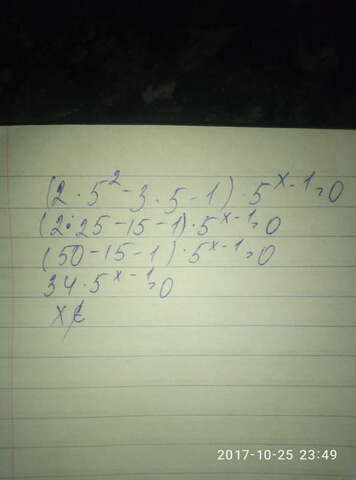 (2·5²-3·5-1)·5^{x-1}=0
(2·25-15-1)·5^{x-1}=0
(50-15-1)·5^{x-1}=0
34·5^{x-1}=0
x∉
2017-10-25 23:49